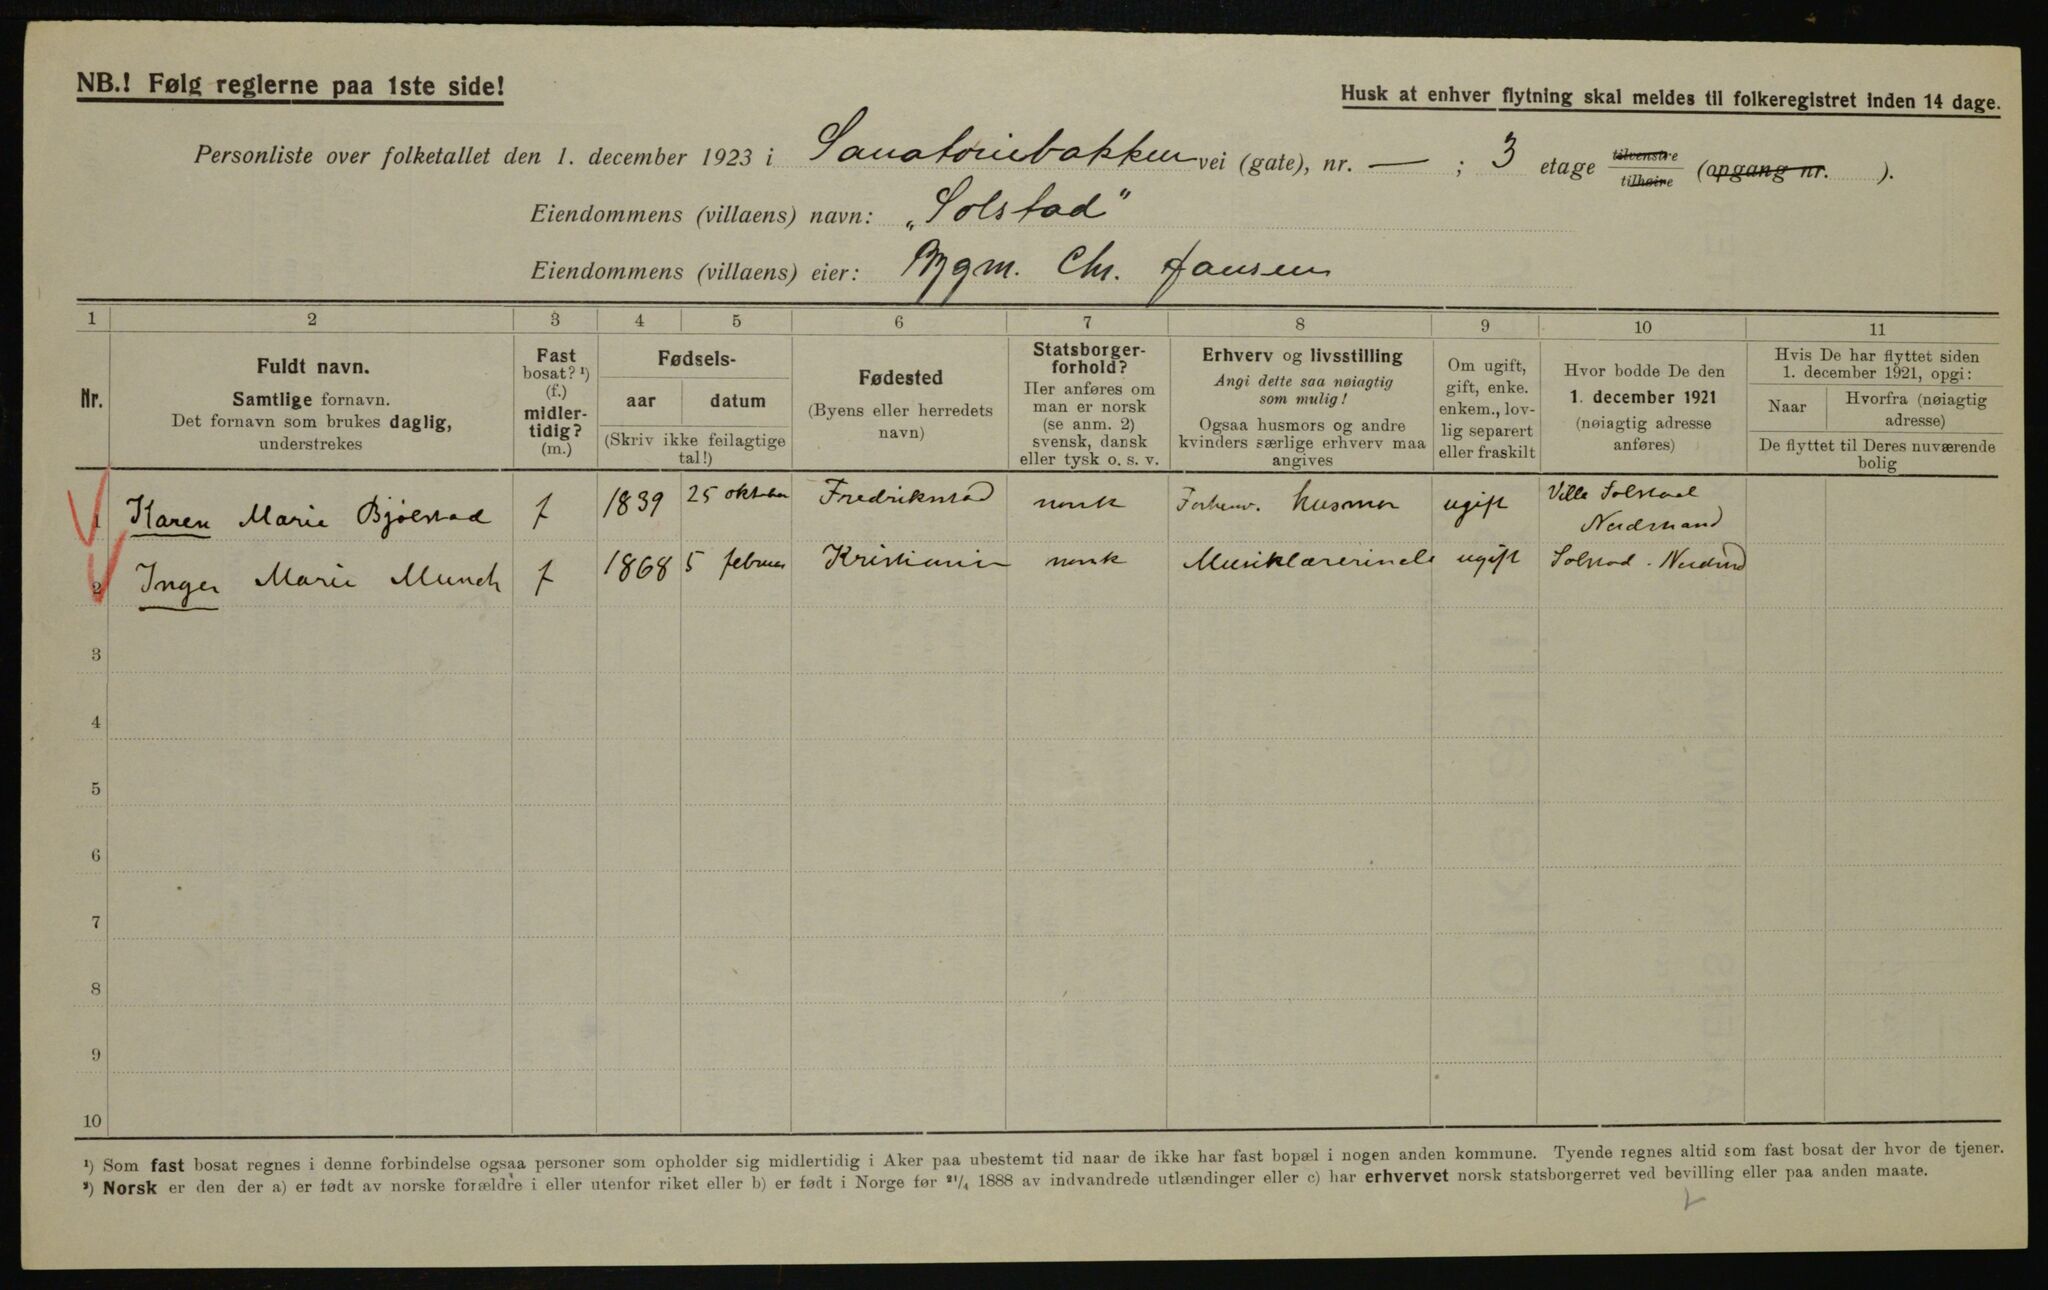 NB.! Følg reglerne paa 1ste side!
Husk at enhver flytning skal meldes til folkeregistret inden 14 dage.
Personliste over folketallet den 1. december 1923 i Sanatoriebakken vei (gate), nr. — ; 3 etage tilvenstre tilhøire (opgang nr. ).
Eiendommens (villaens) navn: „Solstad"
Eiendommens (villaens) eier: Bygm. Chr. Jansen
1 2 3 4 5 6 7 8 9 10 11
Nr.
Fuldt navn.
Samtlige fornavn.
Det fornavn som brukes daglig,
understrekes
Fast
bosat? ¹)
(f.)
midler-
tidig?
(m.)
Fødsels-
aar datum
(Skriv ikke feilagtige
tal!)
Fødested
(Byens eller herredets
navn)
Statsborger-
forhold?
Her anføres om
man er norsk
(se anm. 2)
svensk, dansk
eller tysk o. s. v.
Erhverv og livsstilling
Angi dette saa nøiagtig
som mulig!
Ogsaa husmors og andre
kvinders særlige erhverv maa
angives
Om ugift,
gift, enke.
enkem., lov-
lig separert
eller fraskilt
Hvor bodde De den
1. december 1921
(nøiagtig adresse
anføres)
Hvis De har flyttet siden
1. december 1921, opgi:
Naar
Hvorfra (nøiagtig
adresse)
De flyttet til Deres nuværende
bolig
1 Karen Marie Bjølstad f 1839 25 oktober Fredrikstad norsk Forhenv. husmor ugift Villa Solstad
Nordstrand
2 Inger Marie Munch f 1868 5 februar Kristiania norsk Musiklærerinde ugift Solstad. Nordstrd
3
4
5
6
7
8
9
10
¹) Som fast bosat regnes i denne forbindelse ogsaa personer som opholder sig midlertidig i Aker paa ubestemt tid naar de ikke har fast bopæl i nogen anden kommune. Tyende regnes altid som fast bosat der hvor de tjener.
²) Norsk er den der a) er født av norske forældre i eller utenfor riket eller b) er født i Norge før ²¹/₄ 1888 av indvandrede utlændinger eller c) har erhvervet norsk statsborgerret ved bevilling eller paa anden maate.